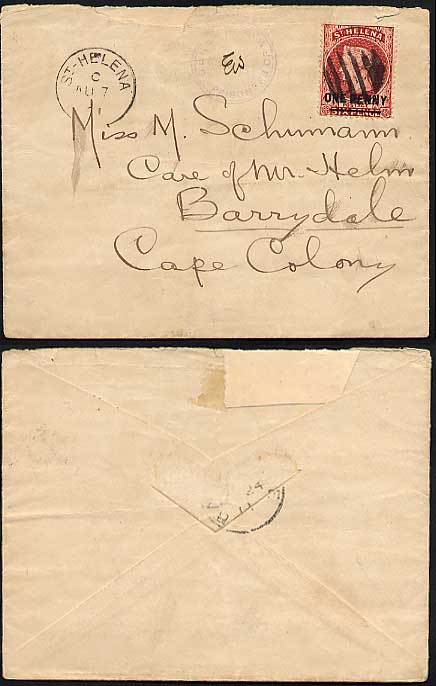 ST-HELENA
C
AU 7
1
ST HELENA
ONE PENNY
SIX PENCE
Miss M. Schumann
Care of Mr. Helm
Barrydale
Cape Colony
24